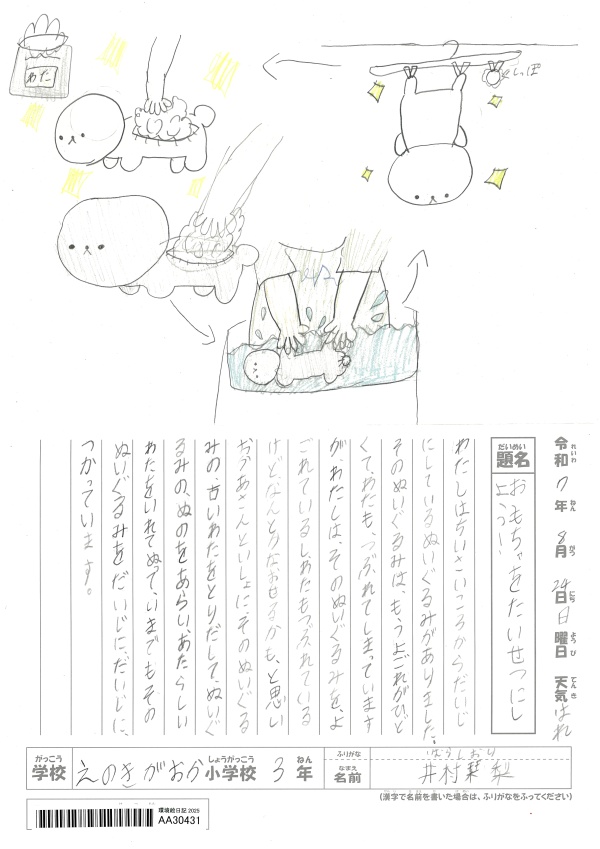 わた
しっぽ
令和7年8月24日日曜日 天気はれ
れいわ ねん がつ にち ようび てんき
だいめい
題名
おもちゃをたいせつにし
よう!
わたしは、ちいさいころからだいじ
にしているぬいぐるみがありました。
そのぬいぐるみは、もうよごれがひど
くて、わたも、つぶれてしまっています
が、わたしは、そのぬいぐるみを、よ
ごれているし、わたもつぶれている
けど、なんとかなおせるかも、と思い
おかあさんといっしょに、そのぬいぐる
みの、古いわたをとりだして、ぬいぐ
るみの、ぬのをあらい、あたらしい
わたをいれてぬって、いまでもその
ぬいぐるみをだいじに、だいじに、
つかっています。
がっこう しょうがっこう ねん
学校 えのきがおか小学校 3年
ふりがな
なまえ
名前 井村栞梨
(漢字で名前を書いた場合は、ふりがなをふってください)
環境絵日記 2025
AA30431